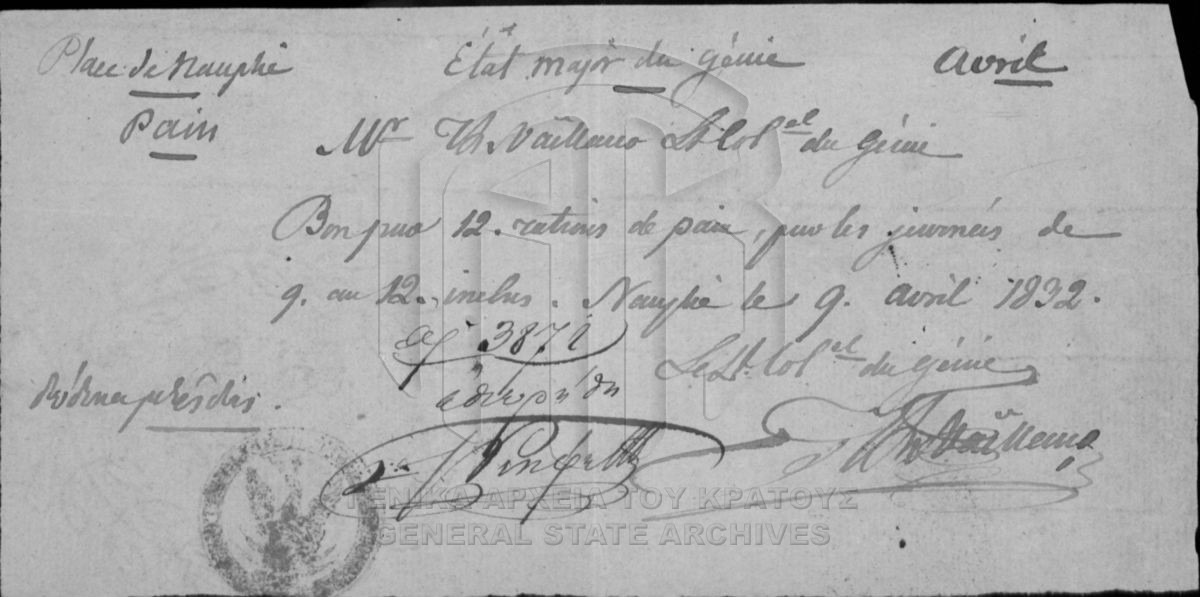 Place de Nauplie
État major du génie
Avril
Pain
Mr Th Vaillano Lt Colel du Génie
Bon pour 12. rations de pain, pour les journées de
9. au 12. inclus. Nauplie le 9. avril 1832.
3871
Le Lt. Colel du Génie
Th Vaillano
ΓΕΝΙΚΑ ΑΡΧΕΙΑ ΤΟΥ ΚΡΑΤΟΥΣ
GENERAL STATE ARCHIVES